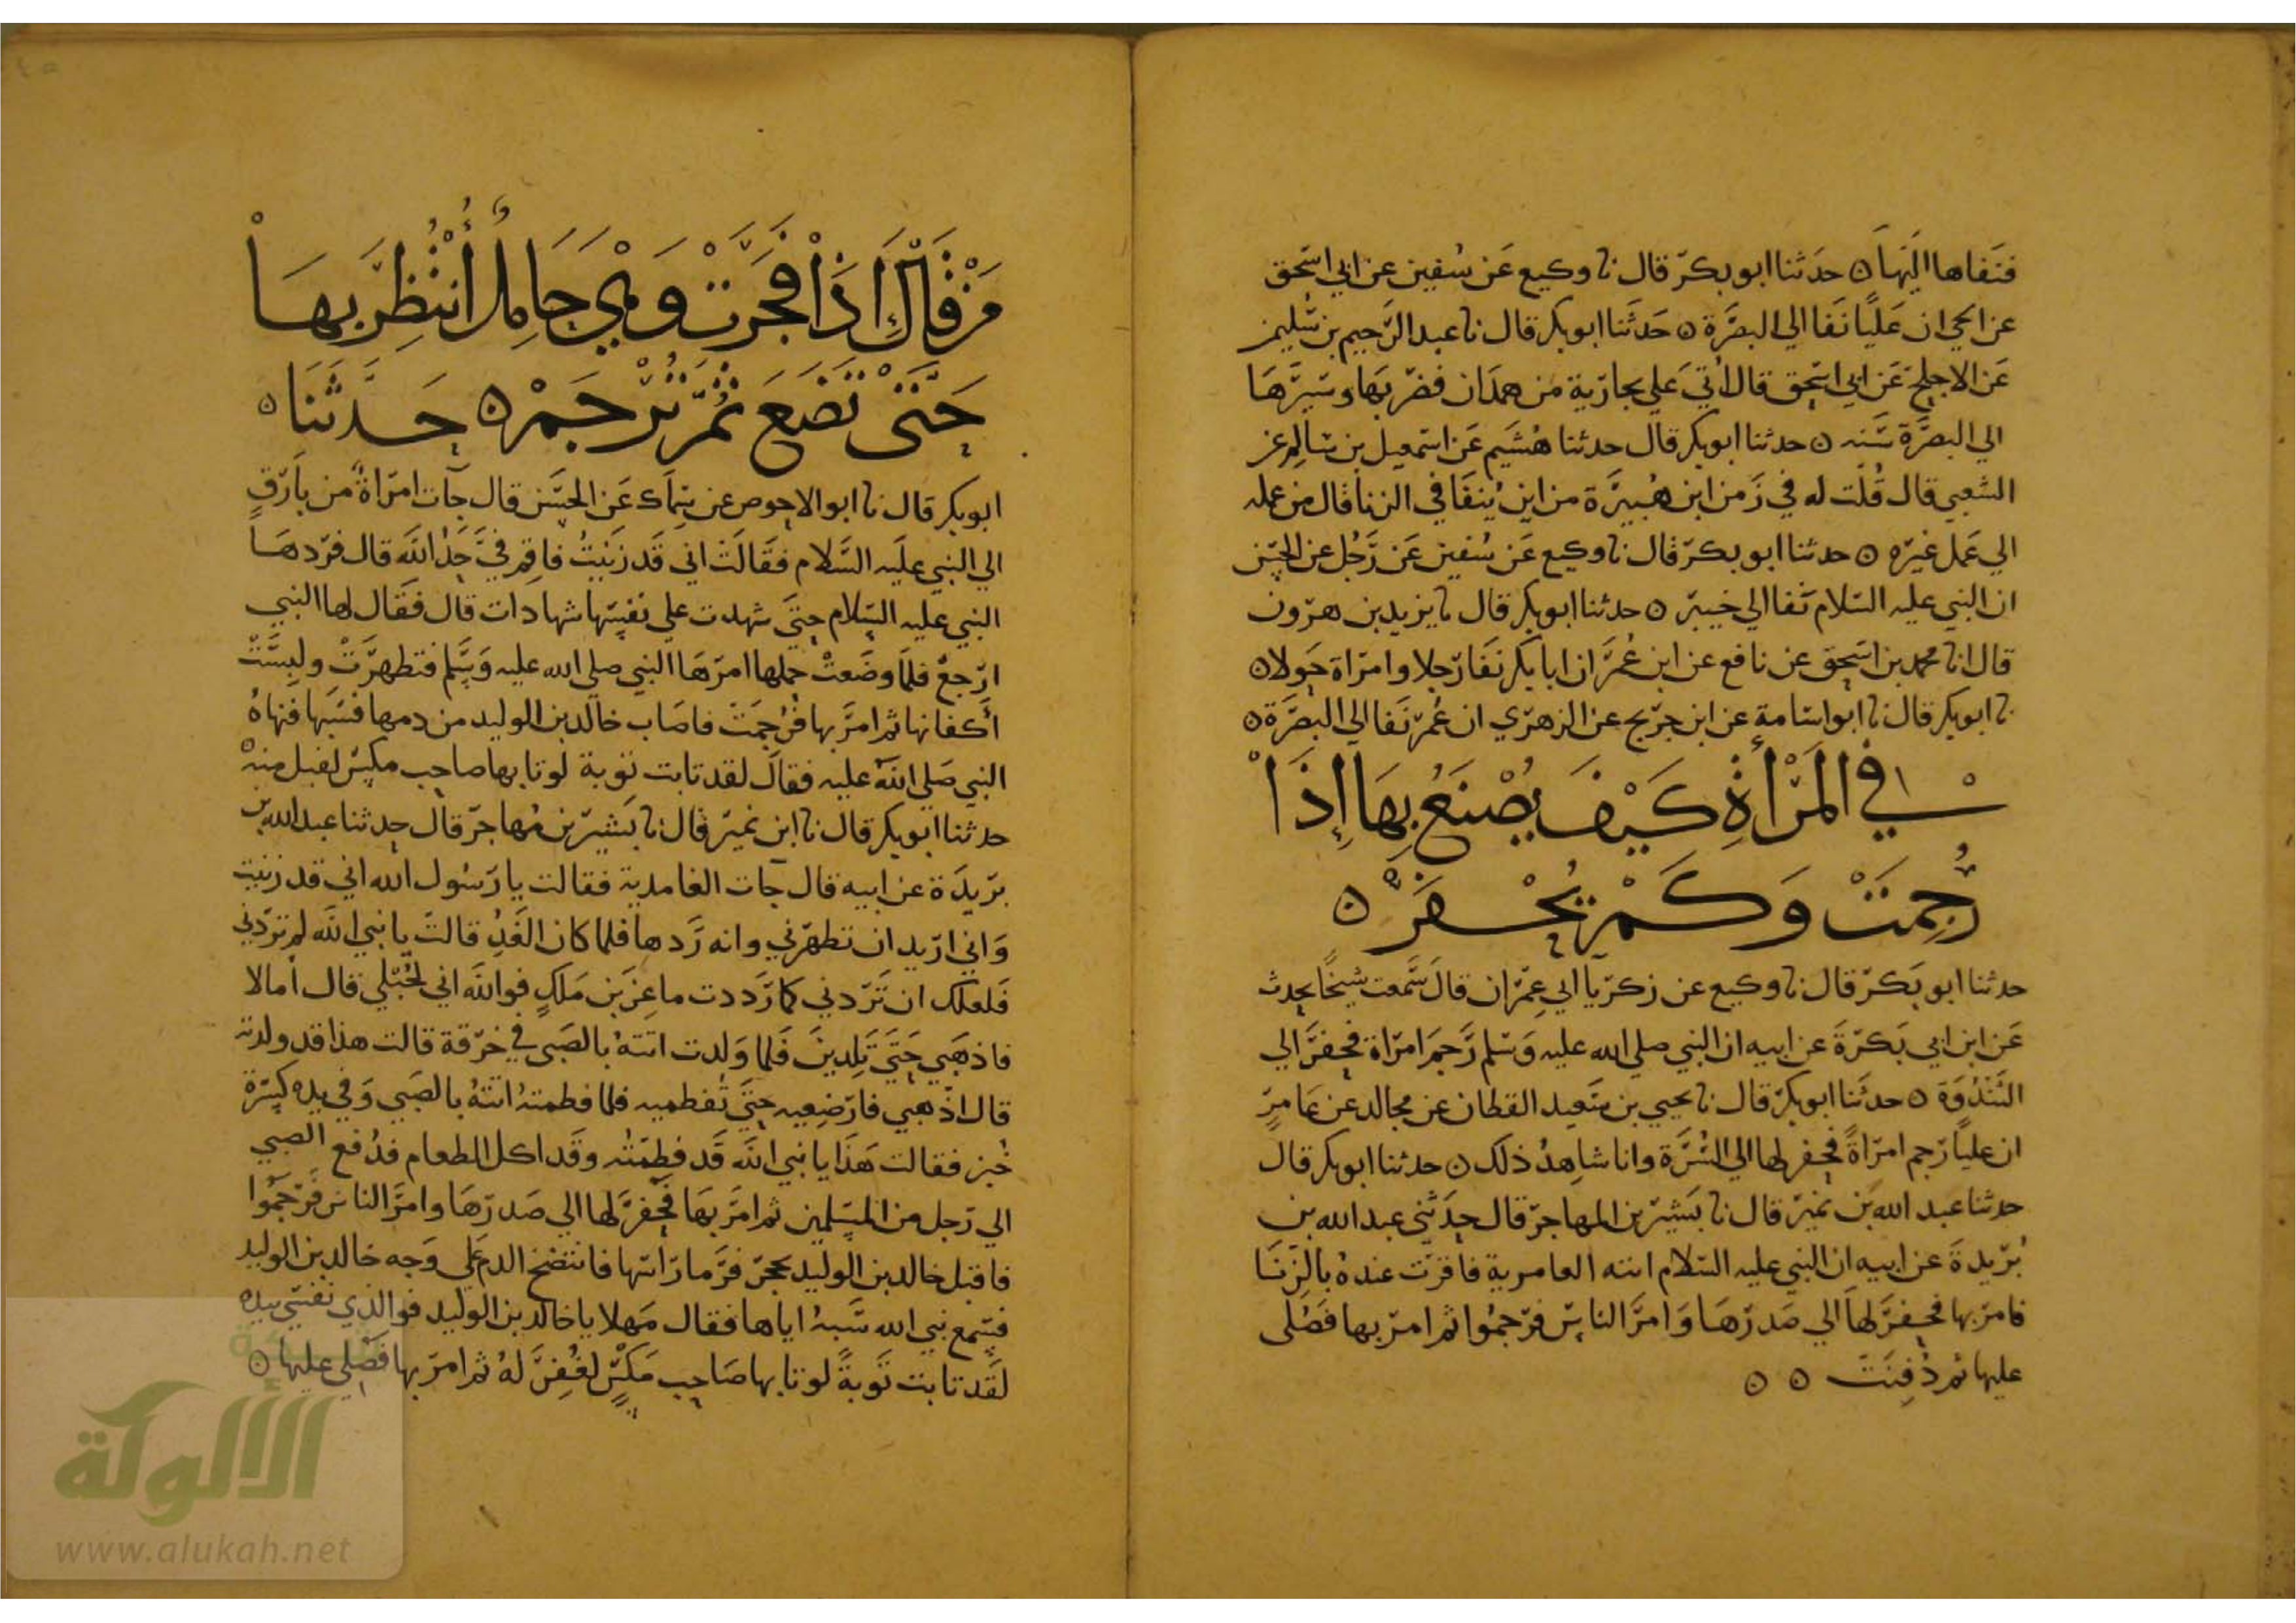 فنفاها اليها ۞ حدثنا ابو بكر قال نا وكيع عن سفين عن ابي اسحق
عن ابحي ان عليا نفا الي البصرة ۞ حدثنا ابو بكر قال نا عبد الرحيم بن سليمن
عن الاجلح عن ابي اسحق قال اتي علي بجارية من همدان فضربها وسيرها
الي البصرة سنه ۞ حدثنا ابو بكر قال حدثنا هشيم عن اسمعيل بن سالم عن
الشعبي قال قلت له في زمن ابن هبيرة من اين ينفا في الزنا قال من عمله
الي عمل غيره ۞ حدثنا ابو بكر قال نا وكيع عن سفين عن رجل عن الحسن
ان النبي عليه السلام نفا الي خيبر ۞ حدثنا ابو بكر قال نا يزيد بن هرون
قال انا محمد بن اسحق عن نافع عن ابن عمر ان ابا بكر نفا رجلا وامراة حولا ۞
نا ابو بكر قال نا ابو اسامة عن ابن جريج عن الزهري ان عمر نفا الي البصرة ۞
في المرأة كيف يصنع بها إذا
رجمت وكم يحفر ۞
حدثنا ابو بكر قال نا وكيع عن زكريا ابي عمران قال سمعت شيخا يحدث
عن ابن ابي بكرة عن ابيه ان النبي صلي الله عليه وسلم رجم امراة فحفر الي
الثندوة ۞ حدثنا ابو بكر قال نا يحيي بن سعيد القطان عن مجالد عن عامر
ان عليا رجم امراة فحفر لها الي السرة وانا شاهد ذلك ۞ حدثنا ابو بكر قال
حدثنا عبد الله بن نمير قال نا بشير بن المهاجر قال حدثني عبد الله بن
بريدة عن ابيه ان النبي عليه السلام اتته العامرية فاقرت عنده بالزنا
فامر بها فحفر لها الي صدرها وامر الناس فرجموا ثم امر بها فصلي
عليها ثم دفنت ۞ ۞
من قال إذا فجرت وهي حامل انتظر بها
حتى تضع ثم ترجم ۞ حدثنا ۞
ابو بكر قال نا ابو الاحوص عن سماك عن الحسن قال جآت امراة من بارق
الي النبي عليه السلام فقالت اني قد زنيت فاقم في حد الله قال فردها
النبي عليه السلام حتى شهدت علي نفسها شهادات قال فقال لها النبي
ارجع فلما وضعت حملها امرها النبي صلي الله عليه وسلم فتطهرت ولبست
أكفانها ثم امر بها فرجمت فاصاب خالد بن الوليد من دمها فسبها فنهاه
النبي صلي الله عليه فقال لقد تابت توبة لو تابها صاحب مكس لقبل منه
حدثنا ابو بكر قال نا ابن نمير قال نا بشير بن مهاجر قال حدثنا عبد الله بن
بريدة عن ابيه قال جآت الغامدية فقالت يا رسول الله اني قد زنيت
واني اريد ان تطهرني وانه ردها فلما كان الغد قالت يا نبي الله لم تردني
فلعلك ان تردني كما رددت ماعز بن ملك فوالله اني لحبلي قال أما لا
فاذهبي حتى تلدين فلما ولدت اتته بالصبي في خرقة قالت هذا قد ولدته
قال اذهبي فارضعيه حتى تفطميه فلما فطمته اتته بالصبي وفي يده كسرة
خبز فقالت هذا يا نبي الله قد فطمته وقد اكل الطعام فدفع الصبي
الي رجل من المسلمين ثم امر بها فحفر لها الي صدرها وامر الناس فرجموا
فاقبل خالد بن الوليد بحجر فرما راسها فانتضخ الدم علي وجه خالد بن الوليد
فسمع نبي الله سبه اياها فقال مهلا يا خالد بن الوليد فوالذي نفسي بيده
لقد تابت توبة لو تابها صاحب مكس لغفر له ثم امر بها فصلي عليها ۞
الألوكة
www.alukah.net